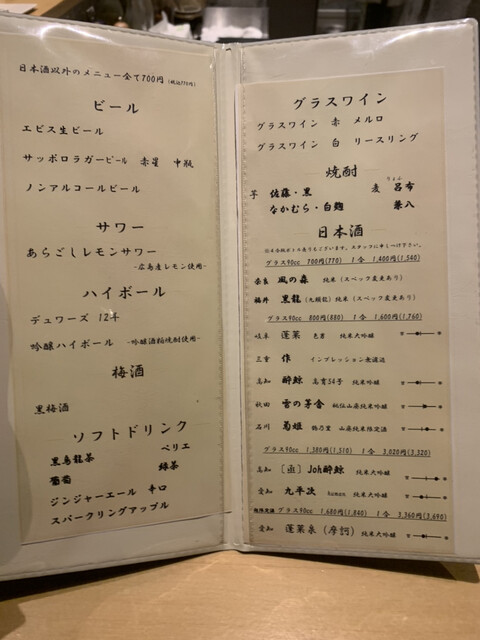 日本酒以外のメニュー全て700円(税込770円)
ビール
エビス生ビール
サッポロラガービール 赤星 中瓶
ノンアルコールビール
サワー
あらごしレモンサワー
-広島産レモン使用-
ハイボール
デュワーズ 12年
吟醸ハイボール -吟醸酒粕焼酎使用-
梅酒
黒梅酒
ソフトドリンク
黒烏龍茶 ペリエ
葡萄 緑茶
ジンジャーエール 辛口
スパークリングアップル
グラスワイン
グラスワイン 赤 メルロ
グラスワイン 白 リースリング
焼酎
りょふ
芋 佐藤・黒 麦 呂布
なかむら・白麹 兼八
日本酒
グラス90cc 700円(770) 1合 1,400円(1,540)
奈良 風の森 純米(スペック変更あり)
福井 黒龍(九頭龍)純米(スペック変更あり)
グラス90cc 800円(880) 1合 1,600円(1,760)
岐阜 蓬莱 色書 純米大吟醸
三重 作 インプレッション 無濾過
高知 酔鯨 高育54号 純米吟醸
秋田 雪の茅舎 秘伝山廃純米吟醸
石川 菊姫 鶴乃里 山廃純米限定酒
グラス90cc 1,380円(1,510) 1合 3,020円(3,320)
高知 Joh酔鯨 純米大吟醸
愛知 九平次 human 純米大吟醸
グラス90cc 1,680円(1,840) 1合 3,360円(3,690)
愛知 蓬莱泉(摩訶) 純米大吟醸